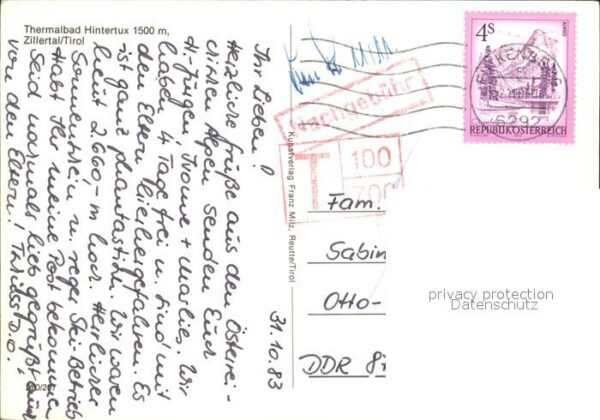 Thermalbad Hintertux 1500 m,
Zillertal/Tirol
Ihr Lieben!
Herzliche Grüße aus den Österrei-
chischen Alpen senden Euch
H.-Jürgen, Yvonne + Marlies. Wir
haben 4 Tage frei u. sind mit
den Eltern hierhergefahren. Es
ist ganz phantastisch. Wir waren
heut 2.660 m hoch. Herrlicher
Sonnenschein u. reger Ski-Betrieb
Habt Ihr meine Post bekommen
Seid nochmals lieb gegrüßt auch
von den Eltern! Tschüss D.O.!
31.10.83
Kunstverlag Franz Milz, Reutte/Tirol
Nachgebühr
T
100
700
4 S
REPUBLIK ÖSTERREICH
6292
Fam.
Sabin
Otto-
DDR 8
privacy protection
Datenschutz